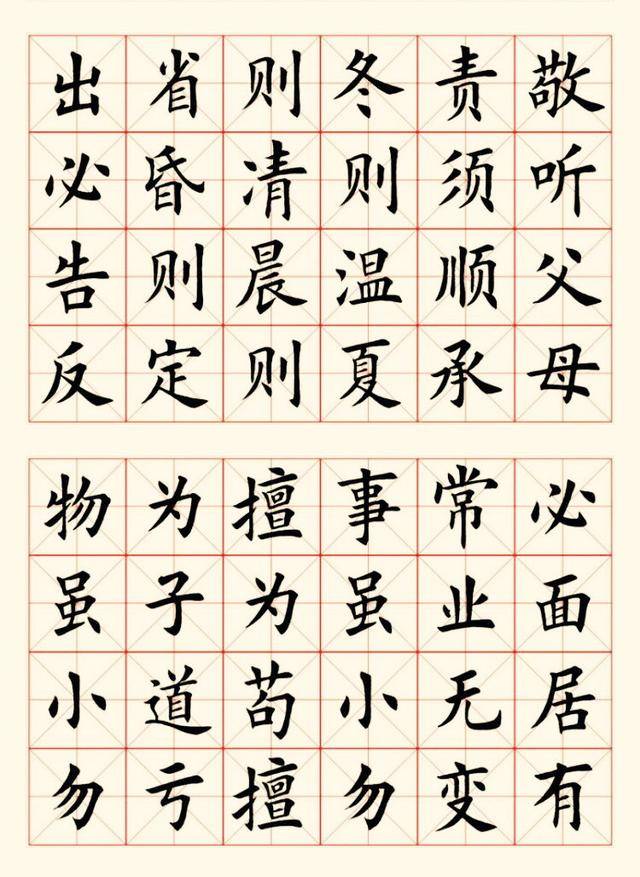 敬听父母
责须顺承
冬则温夏
则凊晨则
省昏则定
出必告反
必面居有
常业无变
事虽小勿
擅为苟擅
为子道亏
物虽小勿